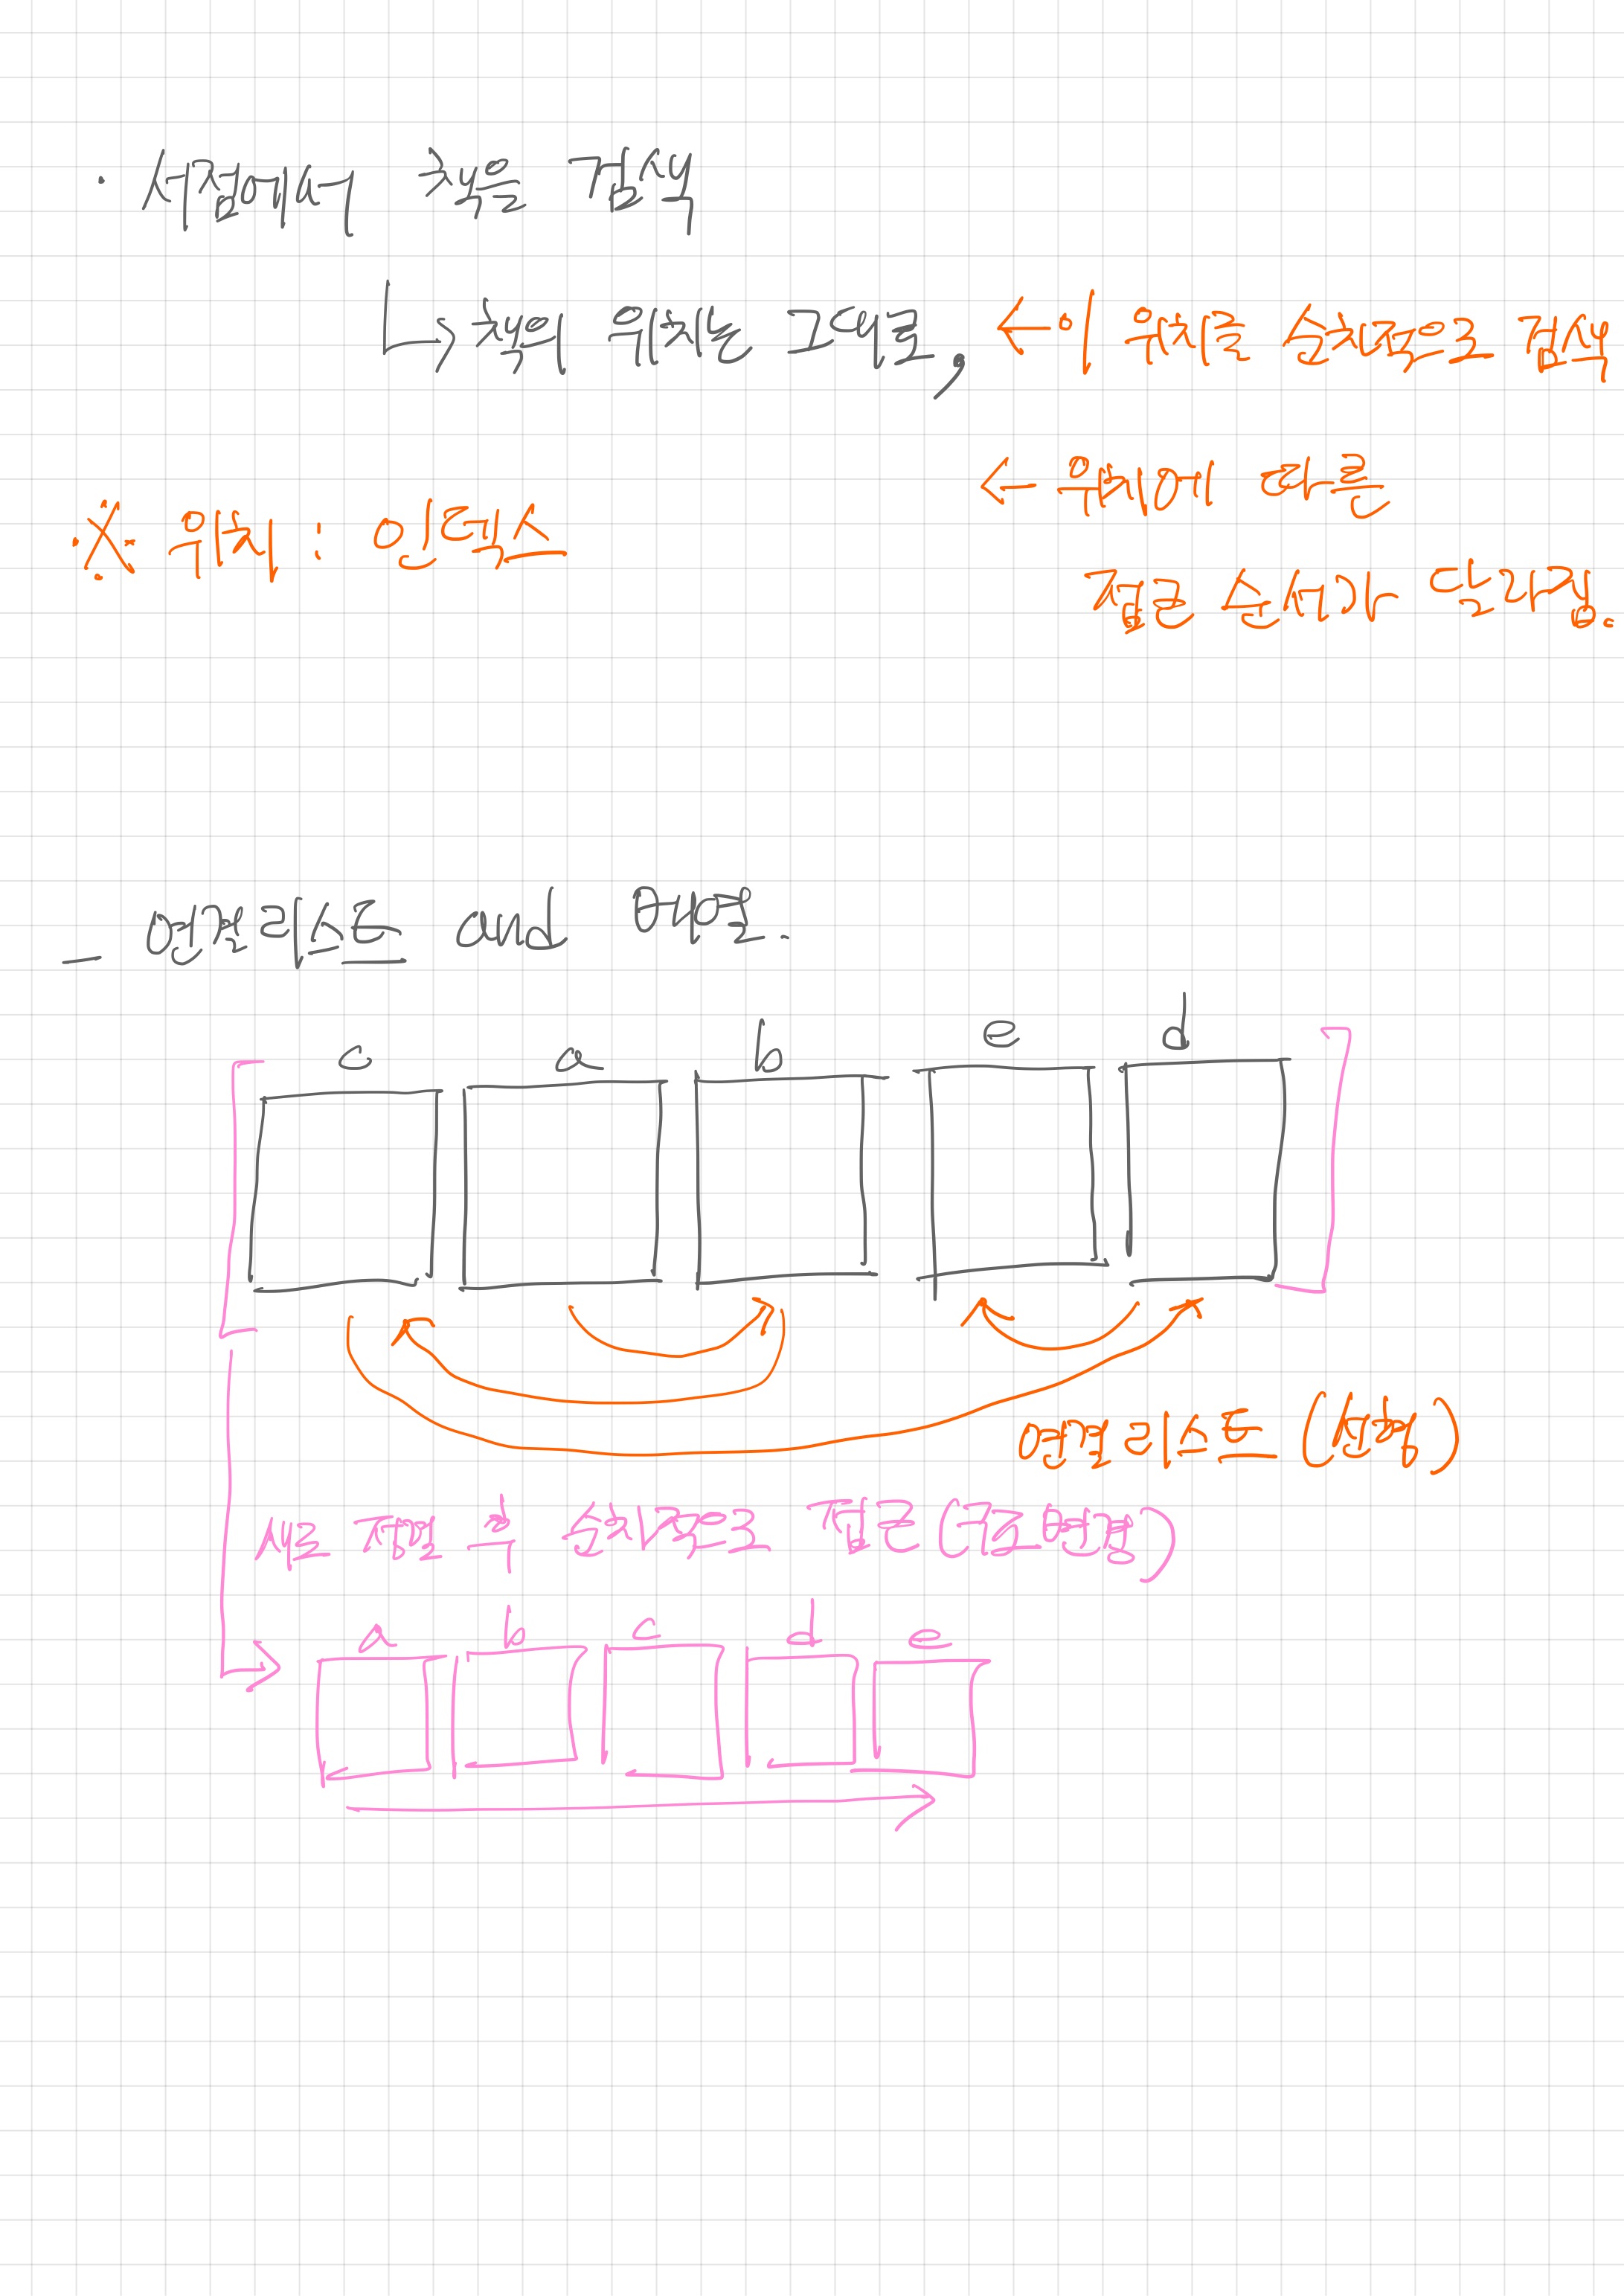 · 서점에서 책을 검색
↳ 책의 위치는 그대로, ← 이 위치를 순차적으로 검색
← 위치에 따른
※ 위치 : 인덱스
접근 순서가 달라짐.
- 연결리스트 and 배열.
c a b e d
연결리스트 (선형)
새로 정렬 후 순차적으로 접근 (구조변경)
a b c d e